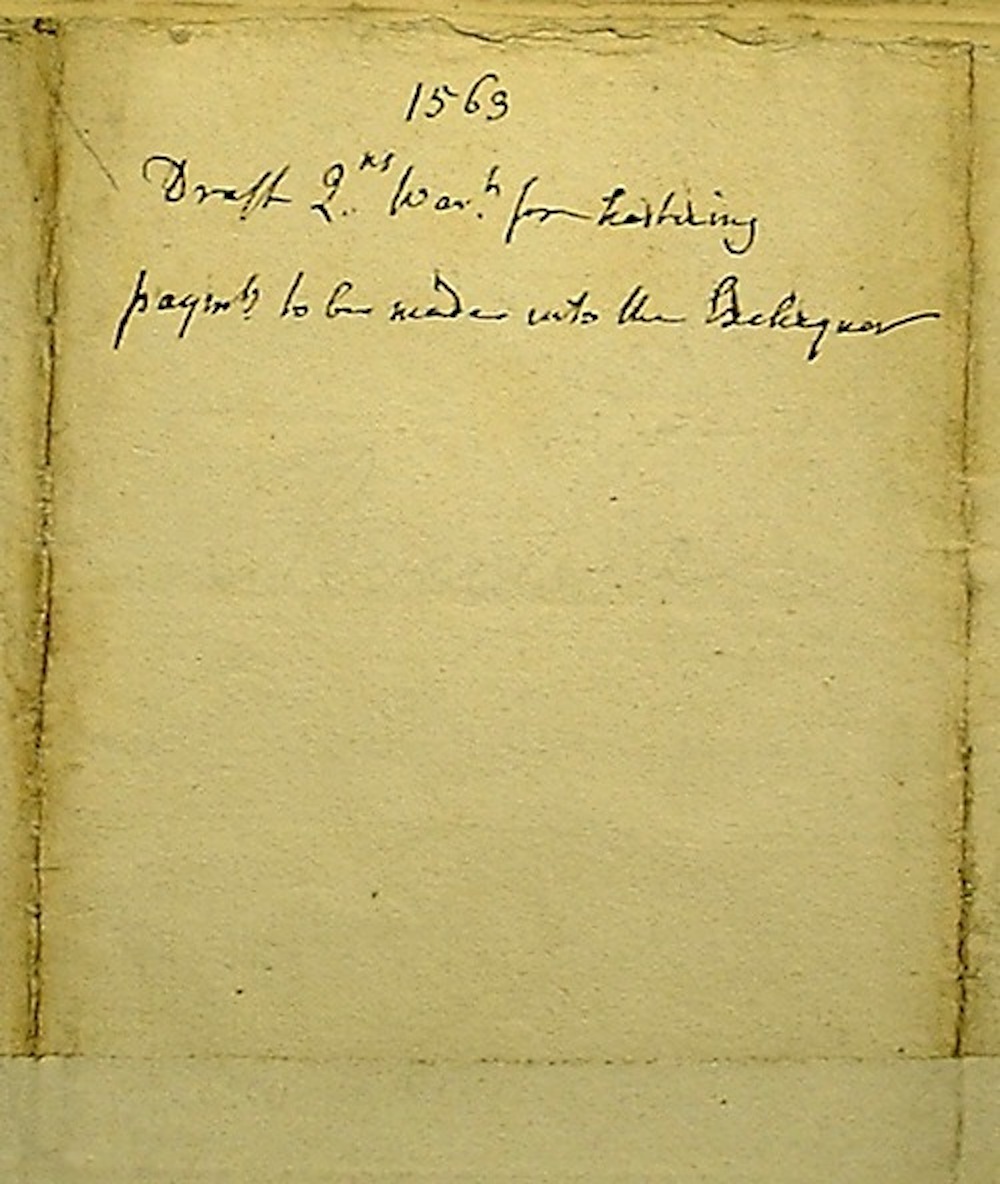 1563
Draft Q.ns War.t for hastening
paymts to be made into the Exchequer